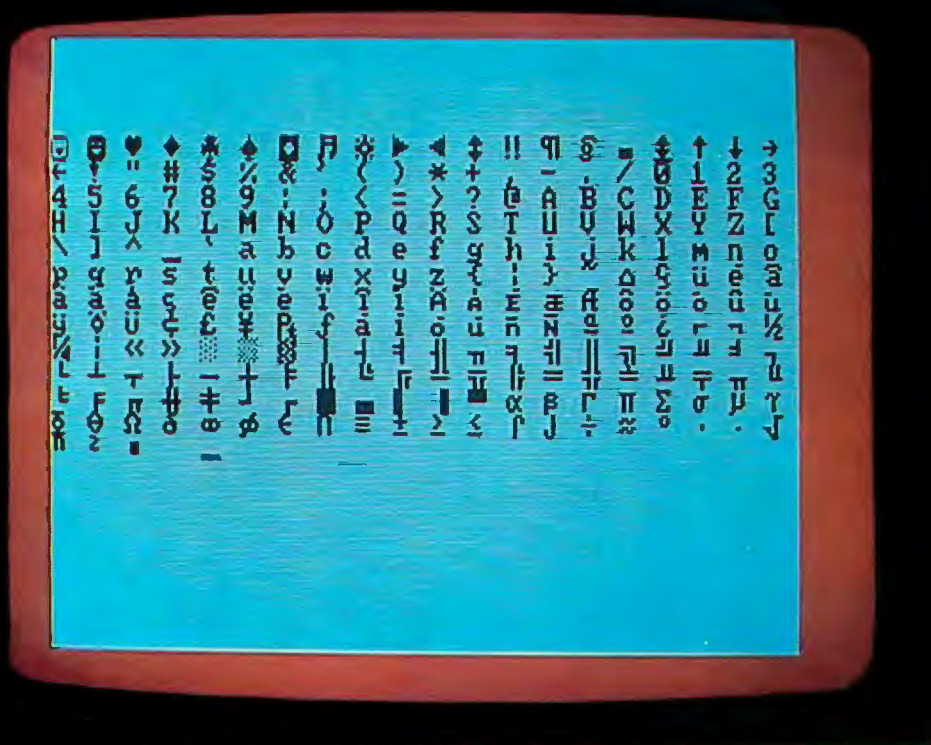 ☺ ☻ ♥ ♦ ♣ ♠ ◘ ♫ ☼ ► ◄ ↕ ‼ ¶ § ▬ ↨ ↑ ↓ →
← ▼ " # $ % & ' ( ) * + , - . / 0 1 2 3
4 5 6 7 8 9 : ; < = > ? @ A B C D E F G
H I J K L M N O P Q R S T U V W X Y Z [
\ ] ^ _ ` a b c d e f g h i j k l m n o
p q r s t u v w x y z { | } ~ ⌂ Ç ü é â
ä à å ç ê ë è ï î ì Ä Å É æ Æ ô ö ò û ù
ÿ Ö Ü ¢ £ ¥ ₧ ƒ á í ó ú ñ Ñ ª º ¿ ⌐ ¬ ½
¼ ¡ « » ░ ▒ ▓ │ ┤ ╡ ╢ ╖ ╕ ╣ ║ ╗ ╝ ╜ ╛ ┐
└ ┴ ┬ ├ ─ ┼ ╞ ╟ ╚ ╔ ╩ ╦ ╠ ═ ╬ ╧ ╨ ╤ ╥ ╙
╘ ╒ ╓ ╫ ╪ ┘ ┌ █ ▄ ▌ ▐ ▀ α β Γ π Σ σ µ τ
Φ Θ Ω δ ∞ φ ε ∩ ≡ ± ≥ ≤ ⌠ ⌡ ÷ ≈ ° ∙ · √
ⁿ ² ■